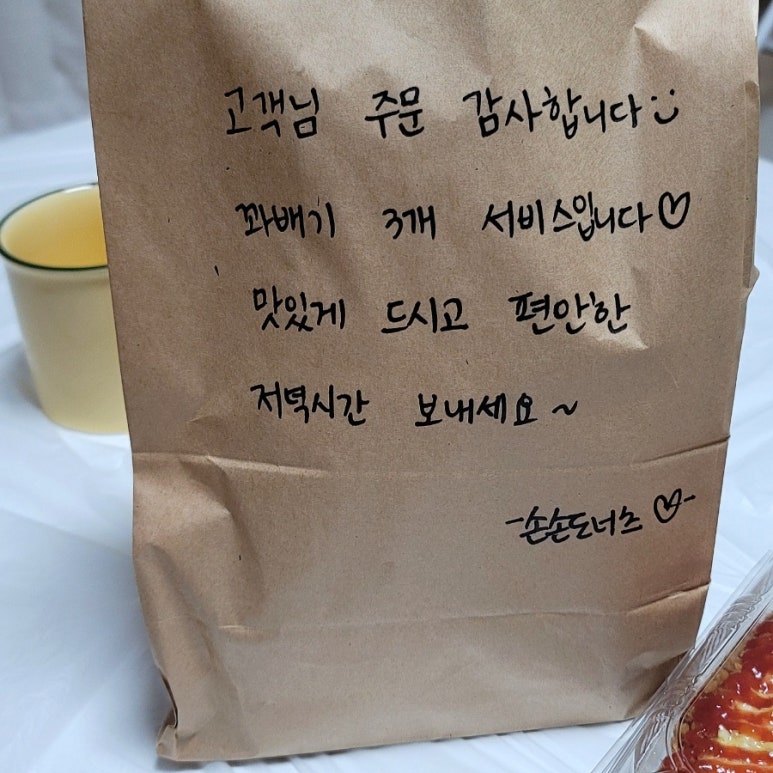 고객님 주문 감사합니다 :)
꽈배기 3개 서비스입니다♡
맛있게 드시고 편안한
저녁시간 보내세요~
-손손도너츠♡-